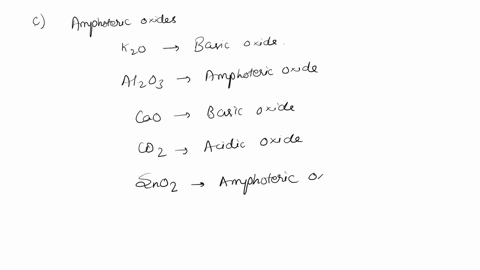 c) Amphoteric oxides
K2O → Basic oxide.
Al2O3 → Amphoteric oxide
CaO → Basic oxide
CO2 → Acidic oxide
SnO2 → Amphoteric ox